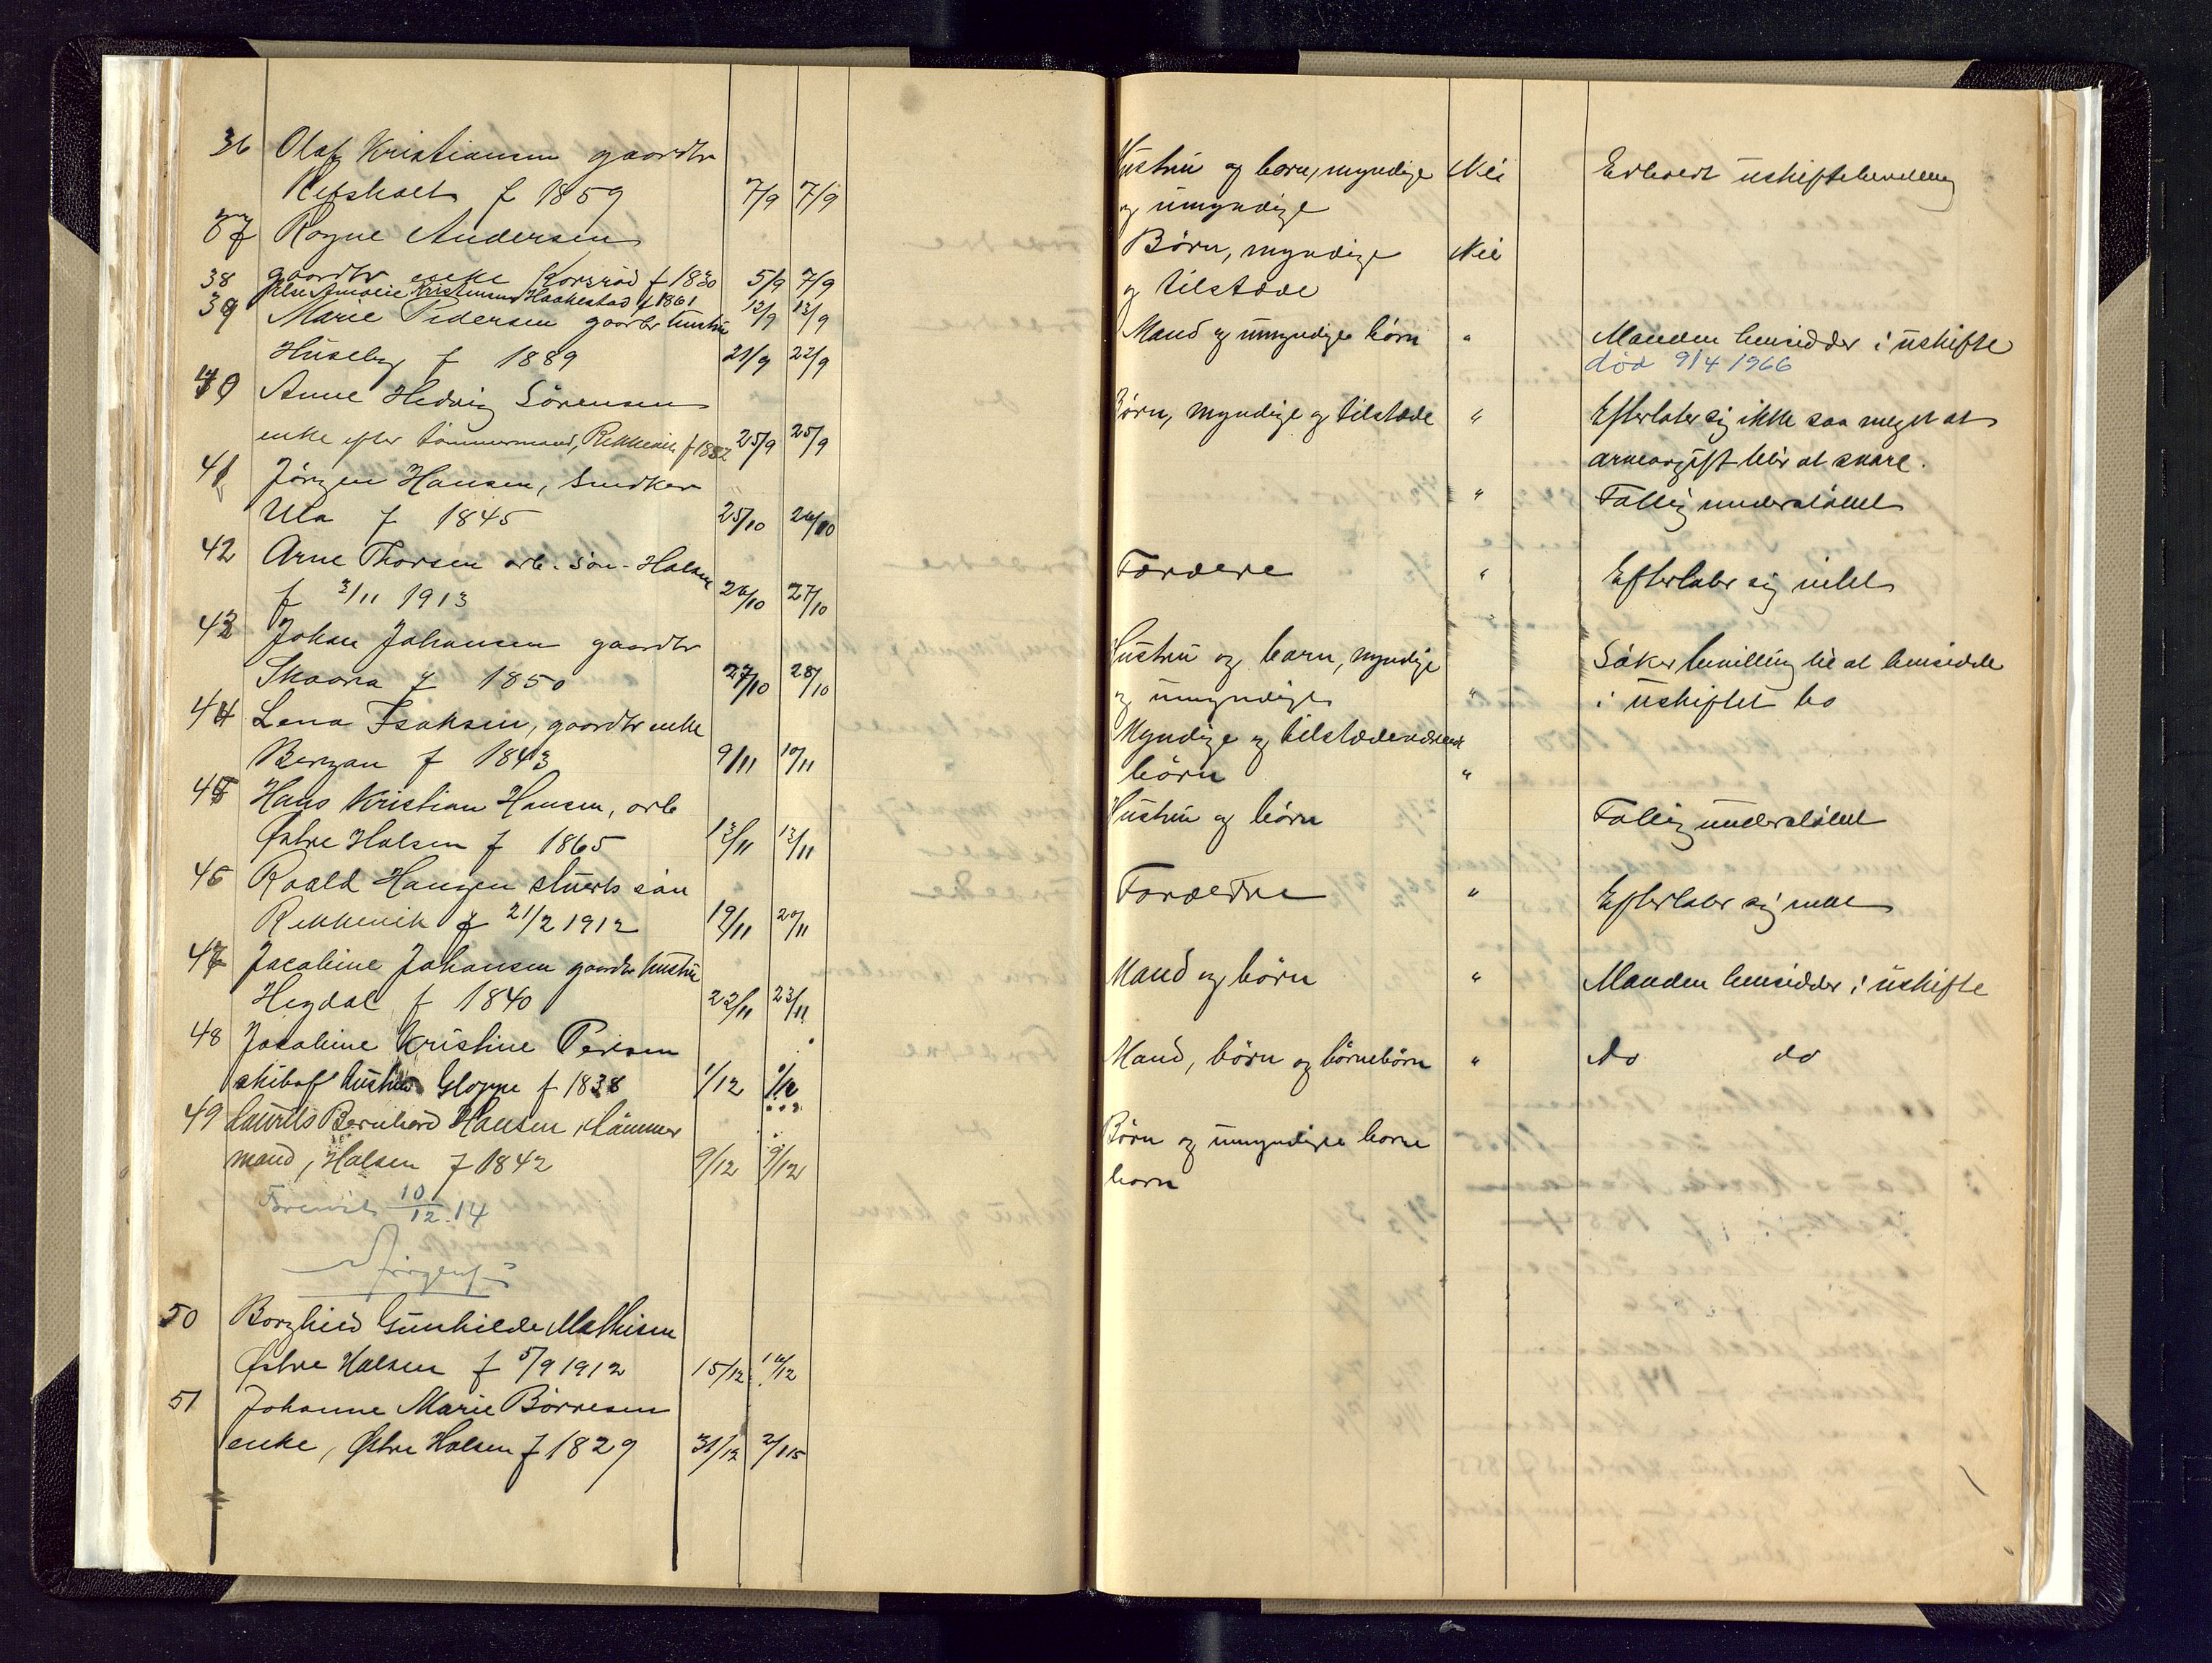 36 Olaf Kristiansen gaardbr
Refsholt f 1859 7/9 7/9
37 Ragne Andersen
gaardbr enke Korsrød f 1830 5/9 7/9
38 Else Amalie Kristensen Haakestad f 1861 12/9 12/9
39 Marie Pedersen gaardbr hustru
Huseby f 1889 21/9 22/9
40 Anne Hedvig Sörensen
enke efter tømmermand, Rekkevik f 1832 25/9 25/9
41 Jørgen Hansen, Snedker
Ula f 1845 25/10 26/10
42 Arne Thorsen arb. sön - Halsen
f 3/11 1913 26/10 27/10
43 Johan Johansen gaardbr
Skaara f 1850 27/10 28/10
44 Lena Isaksen, gaardbr enke
Bergan f 1843 9/11 10/11
45 Hans Kristian Hansen, arb
Østre Halsen f 1865 13/11 13/11
46 Roald Haugen stuerts sön
Rekkevik f 21/2 1912 19/11 20/11
47 Jacobine Johansen gaardbr hustru
Hegdal f 1840 22/11 23/11
48 Jacobine Kristine Persen
skibsf hustru Gloppe f 1838 1/12 1/12
49 Laurits Bernhard Hansen, tömmer
mand, Halsen f 1842 9/12 9/12
Forevist 10/12.14
50 Borghild Gunhilde Mathisen
Østre Halsen f 5/9 1912 15/12 16/12
51 Johanne Marie Börresen
enke, Østre Halsen f 1829 31/12 2/1 15
Hustru og barn, myndige Nei Erholdt uskiftebevilling
og umyndige
Børn, myndige Nei
og tilstæde
Mand og umyndige børn " Manden hensidder i uskifte
død 9/4 1966
Børn, myndige og tilstæde " Efterlater sig ikke saa meget at
arveavgift blir at svare.
" Fattigunderstöttet
Forældre " Efterlater sig intet
Hustru og barn, myndige Söker bevilling til at hensidde
og umyndige " i uskiftet bo
Myndige og tilstedeværende
børn "
Hustru og børn Fattigunderstöttet
Forældre " Efterlater sig intet
Mand og børn " Manden hensidder i uskifte
Mand, børn og börnebörn " do do
Børn og umyndige barne
barn